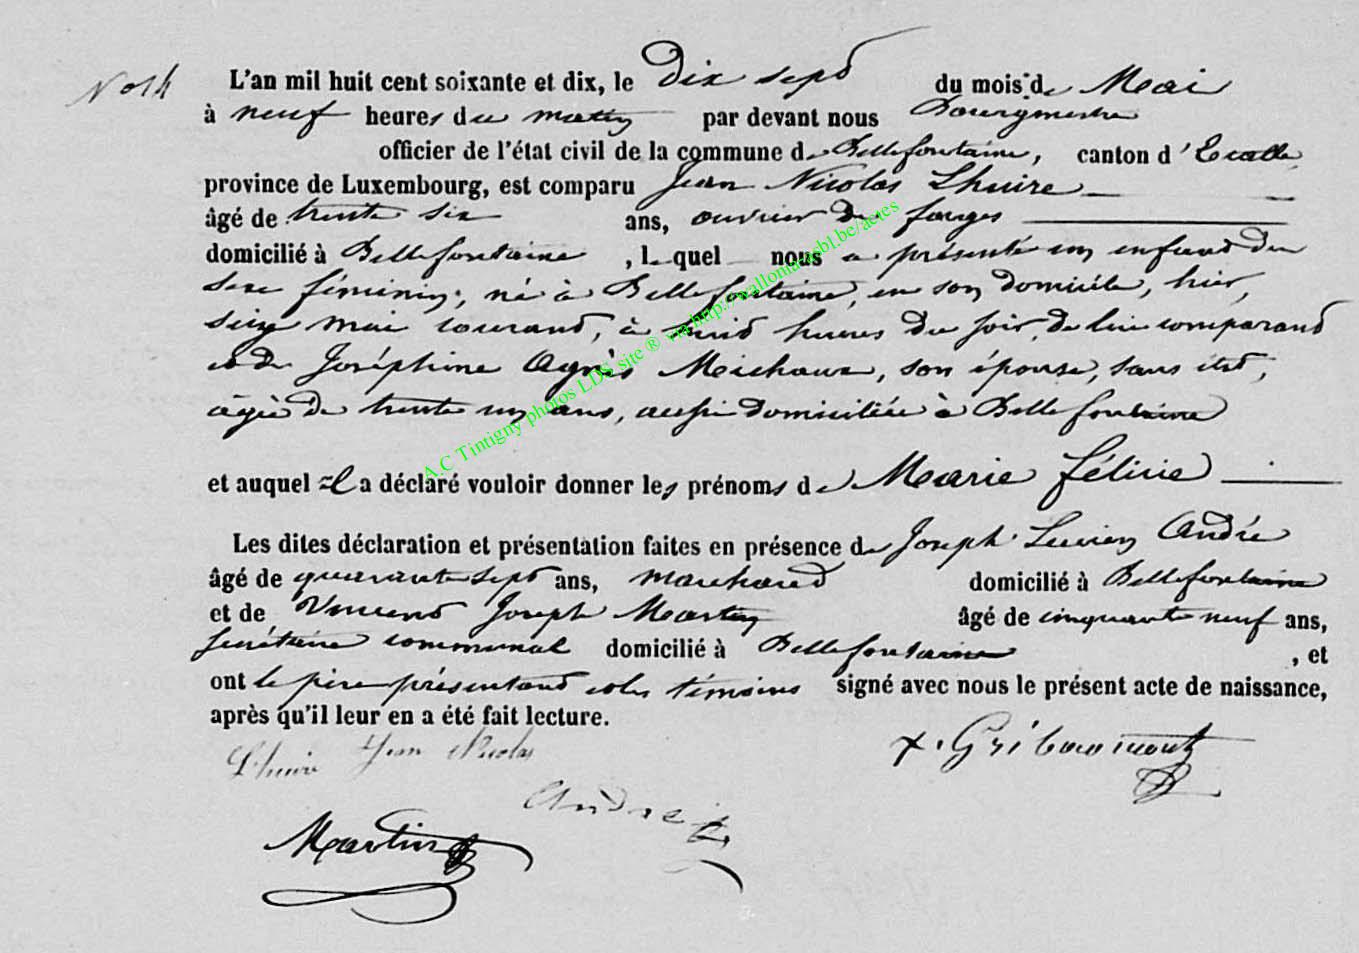 No 14
L'an mil huit cent soixante et dix, le Dix sept du mois de Mai
à neuf heures du matin par devant nous Bourgmestre
officier de l'état civil de la commune de Bellefontaine, canton d'Etalle,
province de Luxembourg, est comparu Jean Nicolas Lhuire
âgé de trente six ans, ouvrier de forges
domicilié à Bellefontaine, lequel nous a présenté un enfant du
sexe féminin, né à Bellefontaine, en son domicile, hier,
seize mai courant, à huit heures du soir, de lui comparant
et de Joséphine Agnès Michaux, son épouse, sans état,
âgée de trente un ans, aussi domiciliée à Bellefontaine
et auquel il a déclaré vouloir donner les prénoms de Marie Félicie
Les dites déclaration et présentation faites en présence de Joseph Lucien André
âgé de quarante sept ans, marchand domicilié à Bellefontaine
et de Vincent Joseph Martin âgé de cinquante neuf ans,
secrétaire communal domicilié à Bellefontaine, et
ont le père présentant et les témoins signé avec nous le présent acte de naissance,
après qu'il leur en a été fait lecture.
Lhuire Jean Nicolas
X. Gribaumont
André
Martin
A.C Tintigny photos LDS site ® via http://walloniaasbl.be/actes